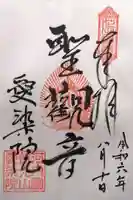 奉拝
令和六年
八月十日
聖観音
愛染院